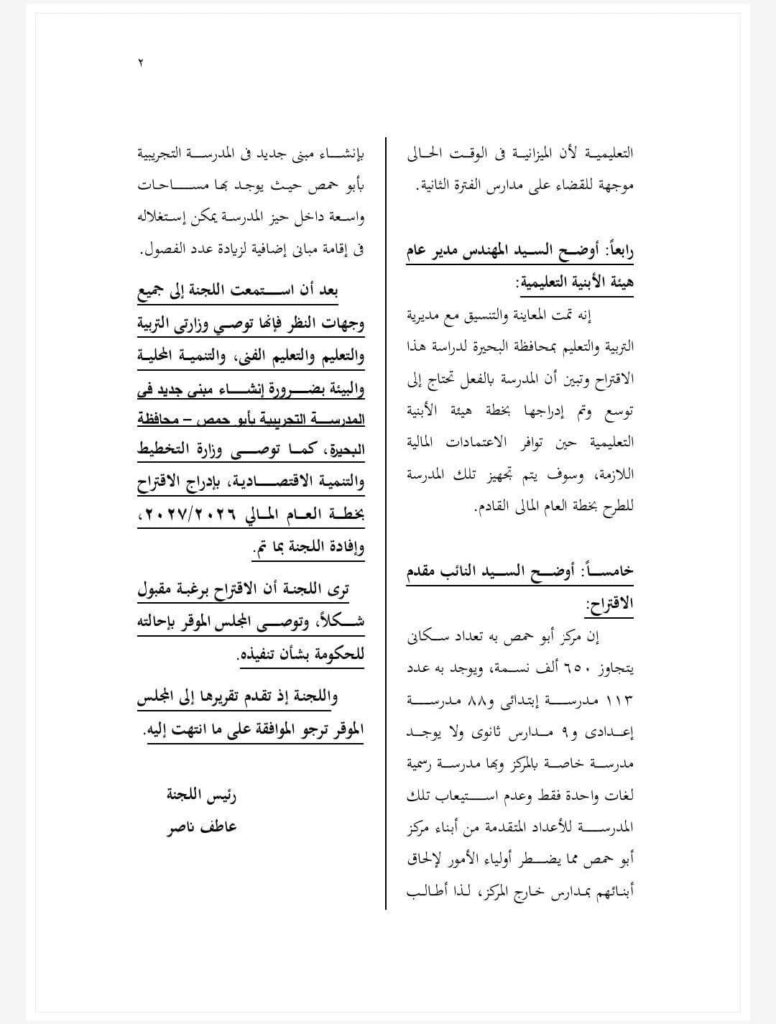 ٢
التعليمية لأن الميزانية فى الوقت الحالى
موجهة للقضاء على مدارس الفترة الثانية.
رابعاً: أوضح السيد المهندس مدير عام
هيئة الأبنية التعليمية:
إنه تمت المعاينة والتنسيق مع مديرية
التربية والتعليم بمحافظة البحيرة لدراسة هذا
الاقتراح وتبين أن المدرسة بالفعل تحتاج إلى
توسع وتم إدراجها بخطة هيئة الأبنية
التعليمية حين توافر الاعتمادات المالية
اللازمة، وسوف يتم تجهيز تلك المدرسة
للطرح بخطة العام المالى القادم.
خامساً: أوضح السيد النائب مقدم
الاقتراح:
إن مركز أبو حمص به تعداد سكانى
يتجاوز ٦٥٠ ألف نسمة، ويوجد به عدد
١١٣ مدرسة إبتدائى و٨٨ مدرسة
إعدادى و٩ مدارس ثانوى ولا يوجد
مدرسة خاصة بالمركز وبها مدرسة رسمية
لغات واحدة فقط وعدم استيعاب تلك
المدرسة للأعداد المتقدمة من أبناء مركز
أبو حمص مما يضطر أولياء الأمور لإلحاق
أبنائهم بمدارس خارج المركز، لذا أطالب
بإنشاء مبنى جديد فى المدرسة التجريبية
بأبو حمص حيث يوجد بها مساحات
واسعة داخل حيز المدرسة يمكن إستغلاله
فى إقامة مبانى إضافية لزيادة عدد الفصول.
بعد أن استمعت اللجنة إلى جميع
وجهات النظر فإنها توصي وزارتى التربية
والتعليم والتعليم الفنى، والتنمية المحلية
والبيئة بضرورة إنشاء مبنى جديد في
المدرسة التجريبية بأبو حمص – محافظة
البحيرة، كما توصى وزارة التخطيط
والتنمية الاقتصادية، بإدراج الاقتراح
بخطة العام المالي ٢٠٢٧/٢٠٢٦،
وإفادة اللجنة بما تم.
ترى اللجنة أن الاقتراح برغبة مقبول
شكلاً، وتوصى المجلس الموقر بإحالته
للحكومة بشأن تنفيذه.
واللجنة إذ تقدم تقريرها إلى المجلس
الموقر ترجو الموافقة على ما انتهت إليه.
رئيس اللجنة
عاطف ناصر